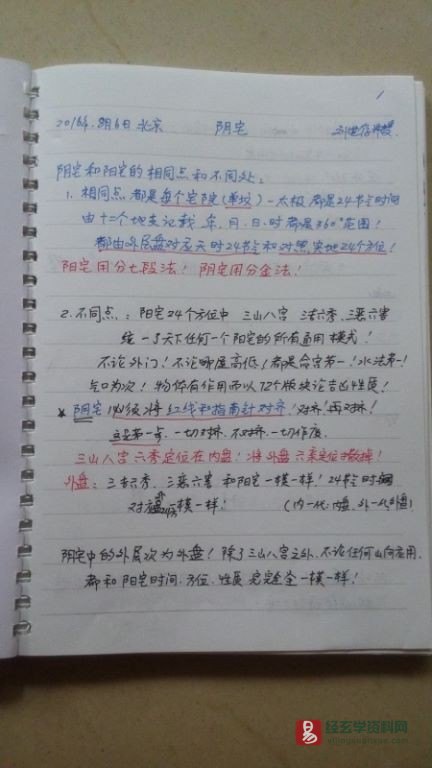 1
2016年8月6日 北京 阴宅
阴宅和阳宅的相同点和不同处:
1. 相同点都是每个宅院(单坟)一太极都是24节令时间
由十二个地支记载年、月、日、时都是360°范围!
都由外层盘对应天时24节令和对照实地24个方位!
阳宅用分七段法! 阴宅用分金法!
2. 不同点:阳宅24个方位中 三山八宫 三吉六秀、三恶六害
统一了天下任何一个阳宅的所有通用模式!
不论外门!不论哪屋高低!都是命宫第一!水法第一!
气口为次!物体有作用而以72个版块论吉凶性质!
* 阴宅必须将红线和指南针对齐!对齐!再对齐!
这是第一步,一切对齐,不对齐,一切作废
三山八宫六秀定位在内盘!将外盘六秀定位撤掉!
外盘:三吉六秀、三恶六害和阳宅一模一样!24节时间
对应一模一样! (内一代:内盘、外一代外盘)
阴宅中的外层次为外盘!除了三山八宫之外、不论任何山向应用
都和阳宅时间、方位、性质完完全全一模一样!
易 经玄学资料网